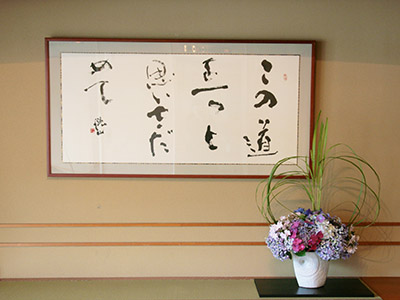 この道
を一つと
思いさだ
めて